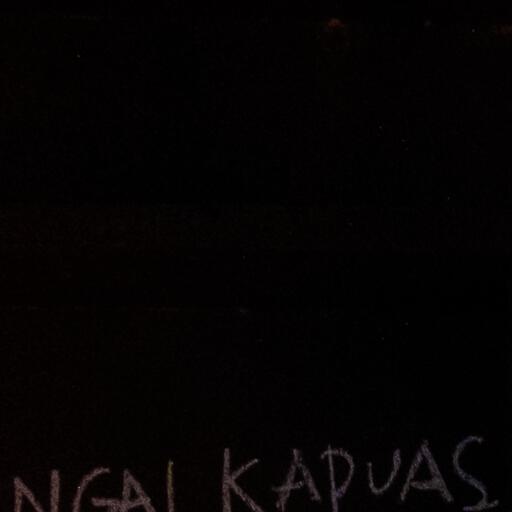 NGAI KAPUAS